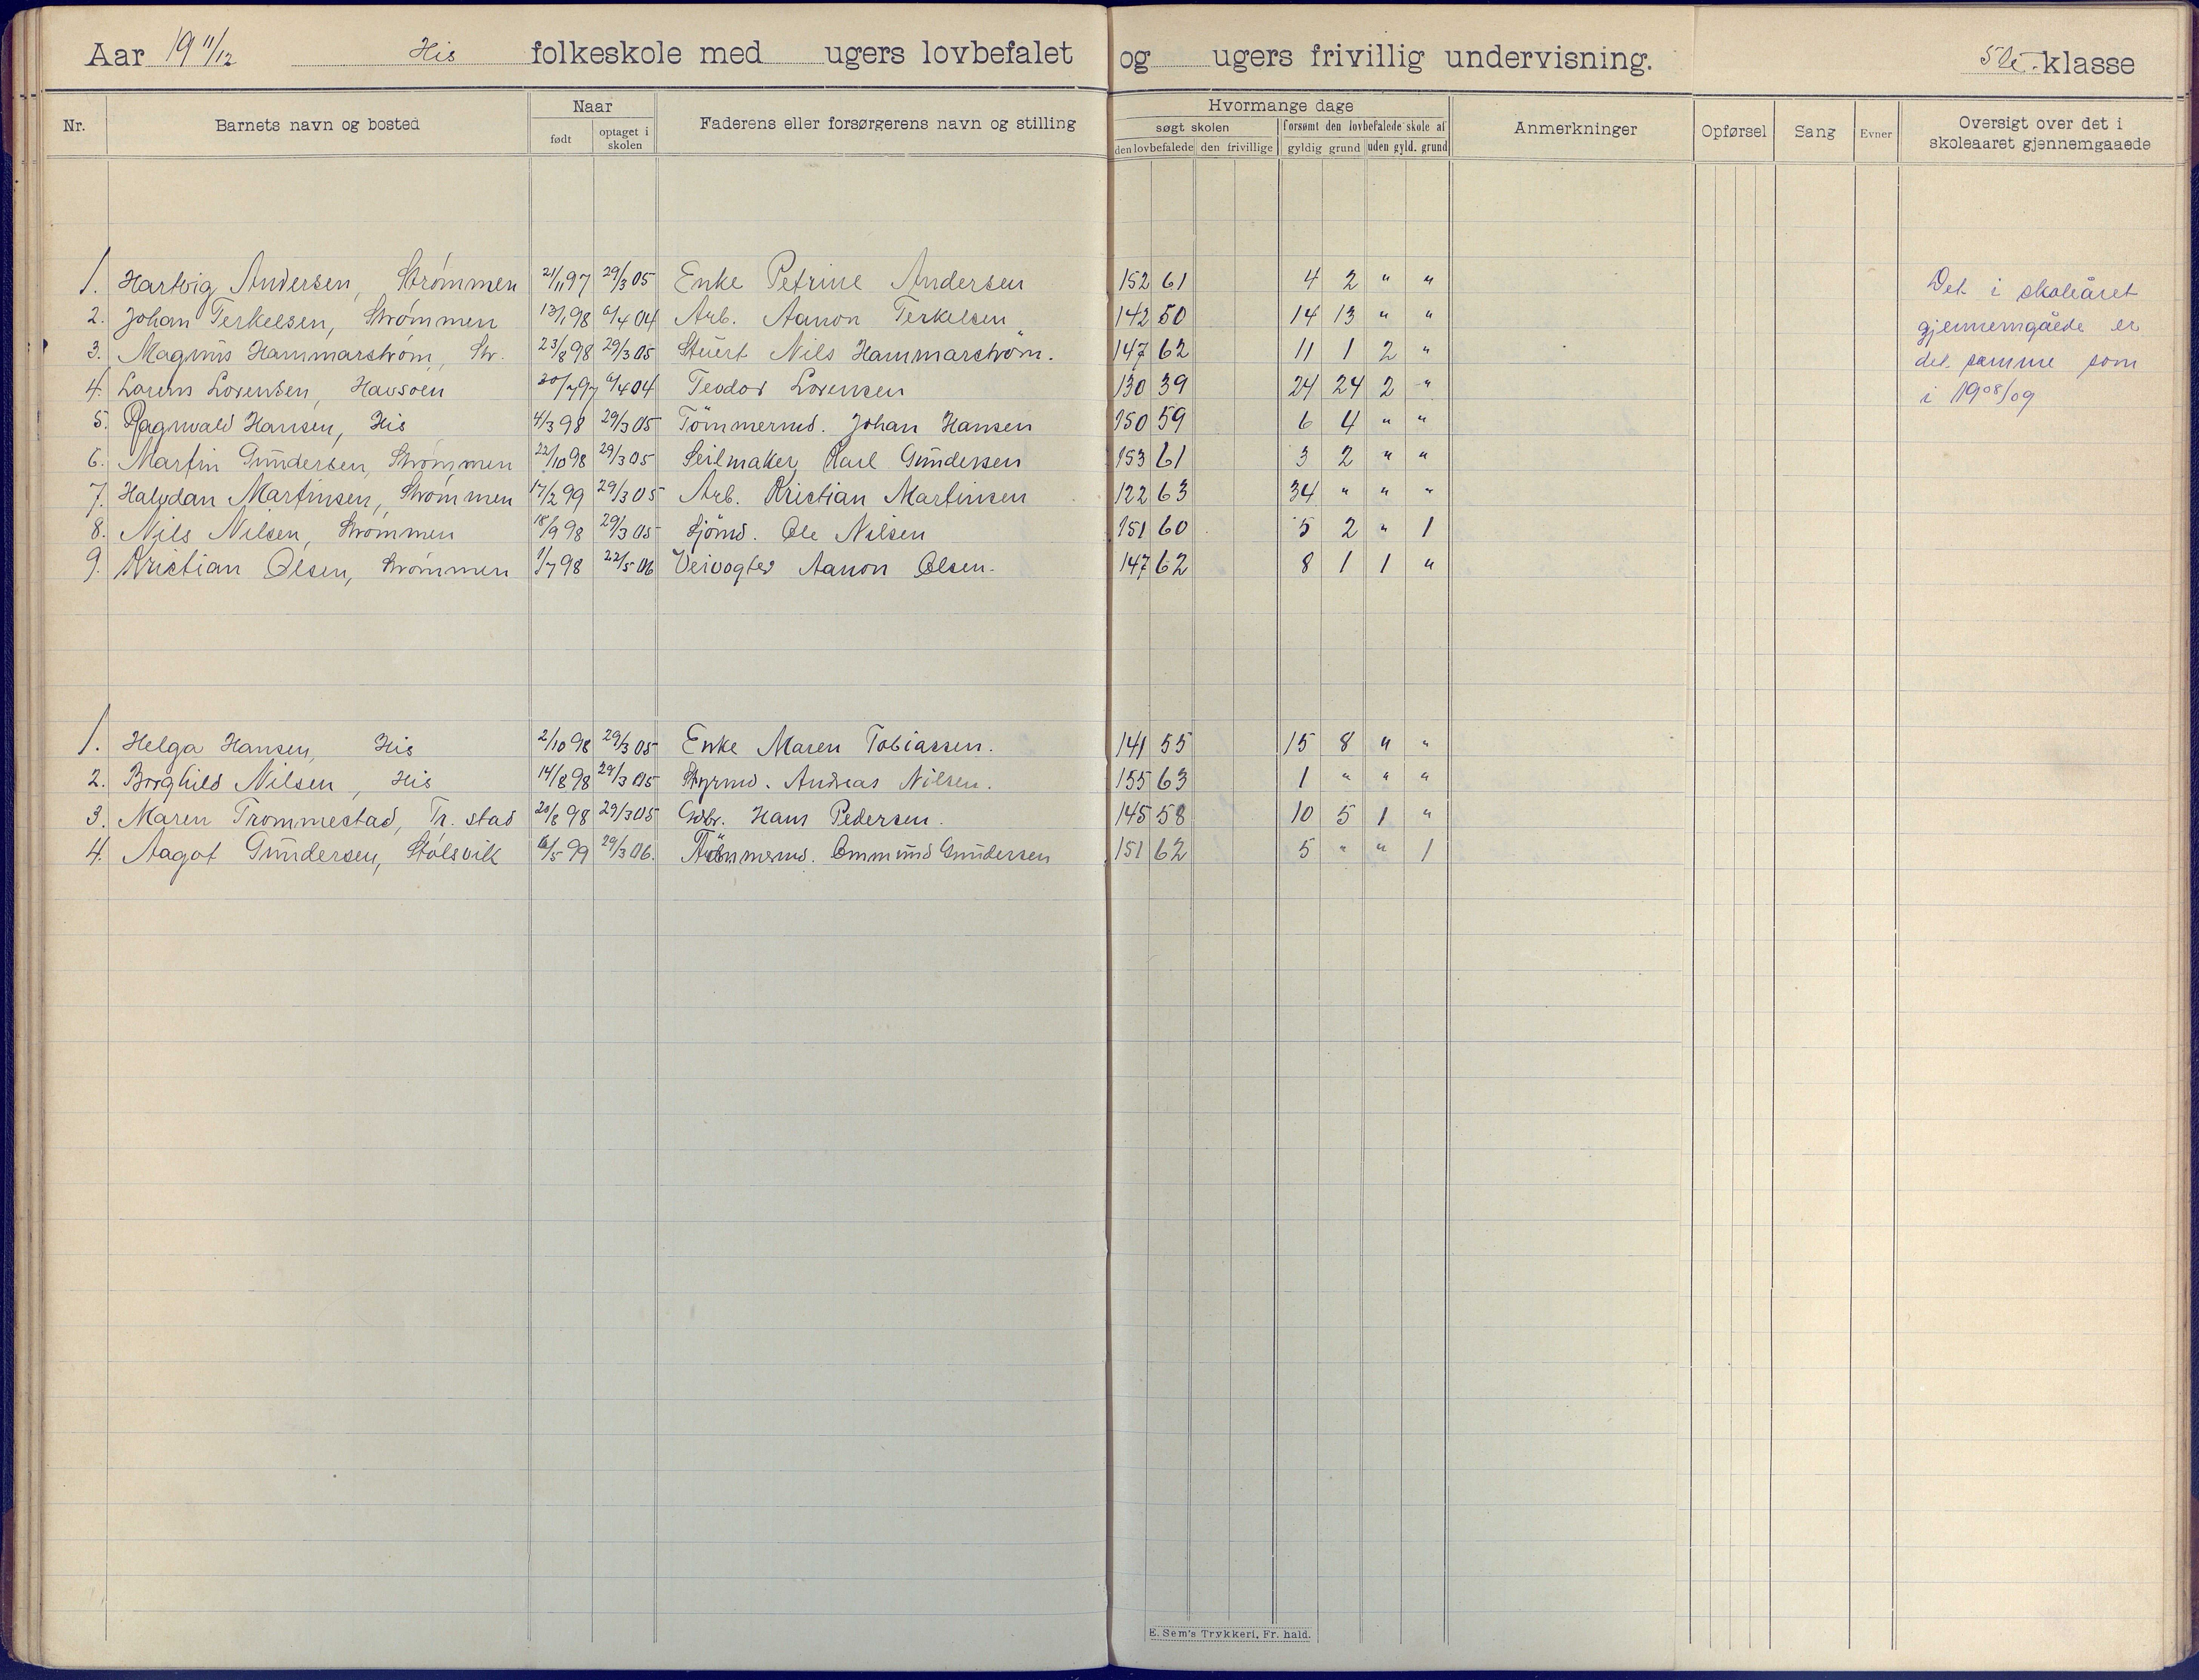 Aar 19 11/12 His folkeskole med ugers lovbefalet og ugers frivillig undervisning. 5te klasse
Nr. Barnets navn og bosted Naar født optaget i skolen Faderens eller forsørgerens navn og stilling Hvormange dage søgt skolen den lovbefalede den frivillige forsømt den lovbefalede skole af gyldig grund uden gyld. grund Anmerkninger Opførsel Sang Evner Oversigt over det i skoleaaret gjennemgaaede
1. Hartvig Andersen, Strømmen 21/11 97 29/3 05 Enke Petrine Andersen 152 61 4 2 " "
2. Johan Terkelsen, Strømmen 13/1 98 6/4 04 Arb. Aanon Terkelsen 142 50 14 13 " "
3. Magnus Hammarström, Str. 23/8 98 29/3 05 Stuert Nils Hammarström. 147 62 11 1 2 "
4. Lorens Lorensen, Havsoen 30/7 97 6/4 04 Teodor Lorensen 130 39 24 24 2 "
5. Ragnvald Hansen, His 4/3 98 29/3 05 Tömmermd. Johan Hansen 150 59 6 4 " "
6. Martin Gundersen, Strømmen 22/10 98 29/3 05 Seilmaker Karl Gundersen 153 61 3 2 " "
7. Halvdan Martinsen, Strømmen 17/2 99 29/3 05 Arb. Kristian Martinsen 122 63 34 " " "
8. Nils Nilsen, Strømmen 18/9 98 29/3 05 Sjömd. Ole Nilsen 151 60 5 2 " 1
9. Kristian Olsen, Strømmen 1/7 98 22/5 06 Veivogter Aanon Olsen. 147 62 8 1 1 "
Det i skoleåret
gjennemgåede er
det samme som
i 1908/09
1. Helga Hansen, His 2/10 98 29/3 05 Enke Maren Tobiassen. 141 55 15 8 " "
2. Borghild Nilsen, His 14/8 98 29/3 05 Styrmd. Andreas Nilsen. 155 63 1 " " "
3. Maren Trommestad, Tr. stad 20/8 98 29/3 05 Gdbr. Hans Pedersen. 145 58 10 5 1 "
4. Aagot Gundersen, Stølsvik 6/5 99 29/3 06. Tömmermd. Ommund Gundersen 151 62 5 " " 1
E. Sem's Trykkeri, Fr. hald.